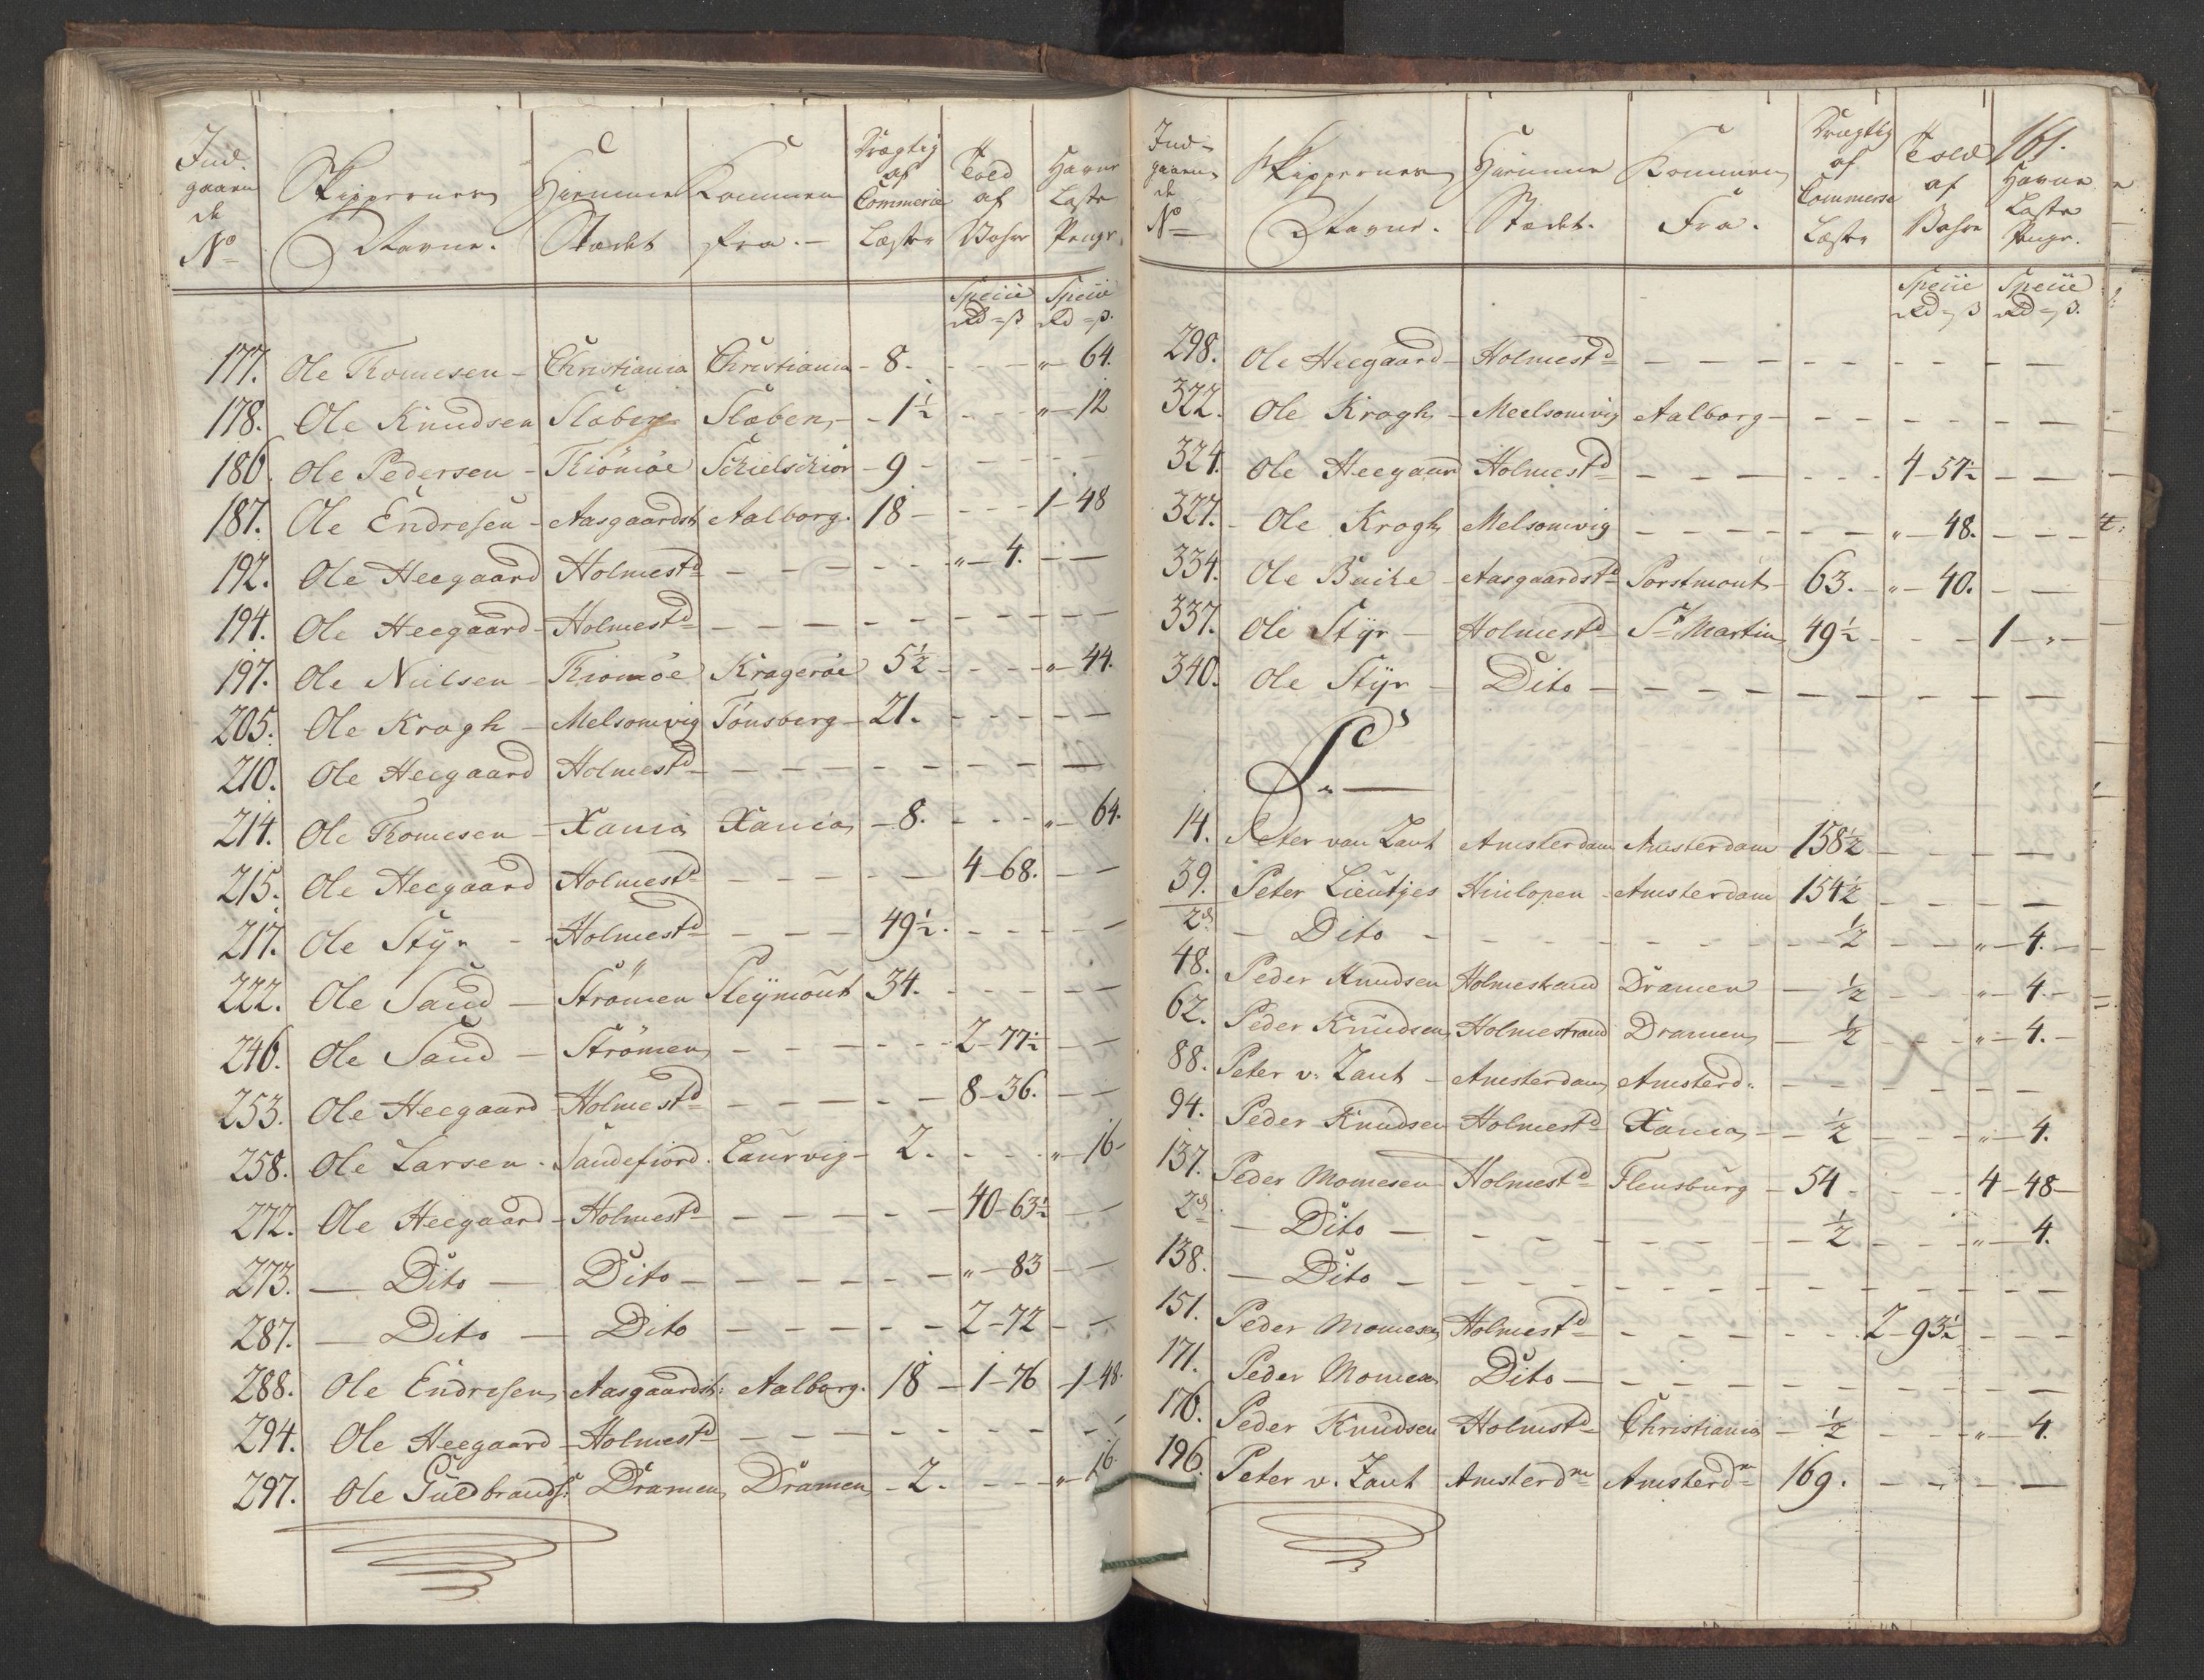 Ind-
gaaen
de
No
Skippernes
Navne.
Hiemme
Stædet
Kommen
fra.
Drægtig
af
Commerce
Læster
Told
af
Vahre
Havne
Læste
Penge
Specie
Rd - ß
Specie
Rd - ß.
177. Ole Thomesen - Christiania Christiania - 8. - - - " - 64.
178. Ole Knudsen Slaben Slaben - 1½ - - - " - 12
186. Ole Pedersen - Thiömöe Schielschiör - 9 - - - - -
187. Ole Endresen - Aasgaardst. Aalborg. 18 - - - - 1 - 48
192. Ole Heegaard Holmestd - - - - - " - 4. - -
194. Ole Heegaard - Holmestd - - - - - - - - -
197. Ole Nielsen - Thiömöe Kragerøe 5½ - - - - " - 44.
205. Ole Krogh - Melsomvig Tønsberg - 21. - - - - -
210. Ole Heegaard Holmestd - - - - - - - - -
214. Ole Thomesen - Xania Xania - 8. - - - " - 64.
215. Ole Heegaard Holmestd - - - - - 4 - 68. - -
217. Ole Stÿr - Holmestd - - - 49½. - - - - -
222. Ole Sand - Strömen Pleÿmout 34. - - - - -
246. Ole Sand - Strömen - - - - - 2 - 77½ - -
253. Ole Heegaard Holmestd - - - - - 8 - 36. - -
258. Ole Larsen - Sandefiord. Laurvig - 2. - - - " - 16 -
272. Ole Heegaard - Holmestd - - - - - 40 - 63½ - -
273. - Dito - Dito - - - - - - " - 83 - -
287. - Dito - Dito - - - - - 2 - 72 - -
288. Ole Endresen Aasgaardst: Aalborg. 18 - 1 - 76 - 1 - 48.
294. Ole Heegaard - Holmestd - - - - - - - - -
297. Ole Guldbrands: Dramen Dramen - 2. - - - " - 16.
161.
Ind-
gaaen-
de
No
Skippernes
Navne.
Hiemme
Stædet.
Kommen
Fra.
Drægtig
af
Commerse
Læster
Told
af
Vahre
Havne
Læste
Penge.
Specie
Rd - ß
Specie
Rd - ß.
298. Ole Heegaard - Holmestd - - - - - - - - -
322. Ole Krogh - Meelsomvig Aalborg - - - - - - -
324. Ole Heegaar Holmestd - - - - - - 4 - 57½ - -
327. - Ole Krogh Melsomvig - - - - - - " - 48. - - -
334. Ole Bache - Aasgaardstd Porstmout - 63. - " - 40. - -
337. Ole Stÿr - Holmestd St Martin 49½ - - - 1 - " -
340. Ole Stÿr - Dito - - - - - - - - -
P.
14. Peter van Zant Amsterdam Amsterdam 158½ - - - -
39. Peter Lieutjes Hinlopen - Amsterdam 154½ - - - -
2d - Dito - - - - - - ½ - - " - 4. -
48. Peder Knudsen Holmestrand Dramen - ½ - - " - 4. -
62. Peder Knudsen Holmestrand Dramen - ½ - - - " - 4. -
88. Peter v. Zant - Amsterdam Amsterd: - - - - - -
94. Peder Knudsen Holmestd Xania - - ½ - - - " - 4.
137. Peder Momesen Holmestd Flensburg - 54 - - - 4 - 48 -
2d - Dito - - - - - - ½ - - - " - 4.
138. - Dito - - - - - - - - - -
151. Peder Momesen Holmestd - - - - - - 2 - 93½ - - -
171. Peder Momesen Dito - - - - - - - - -
176. Peder Knudsen Holmstd Christiania - ½ - - - " - 4.
196. Peter v. Zant Amsterdm Amsterdm 169. - - - -